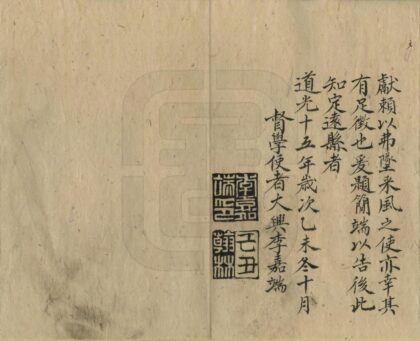 獻賴以弗墜采風之使亦幸其
有足徵也爰題簡端以告後此
知定遠縣者
道光十五年歲次乙未冬十月
督學使者大興李嘉端
李嘉端印
己丑翰林